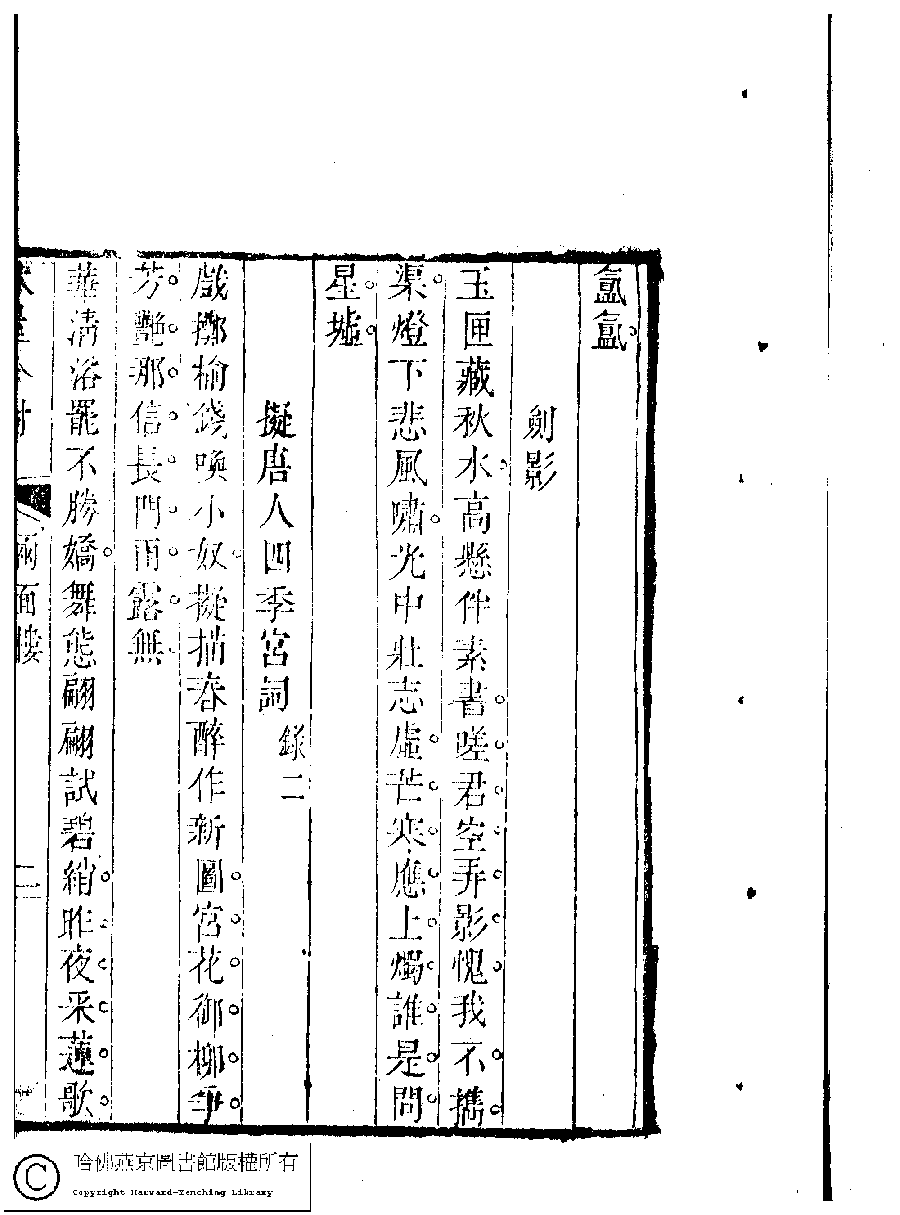 氳氳
劍影
玉匣藏秋水高懸伴素書嗟君空弄影愧我不擕
渠燈下悲風嘯光中壯志虛芒寒應上燭誰是問
星墟
擬唐人四季宮詞 錄二
戲擲榆錢喚小奴擬描春醉作新圖宮花御柳爭
芳艷那信長門雨露無
華淸浴罷不勝嬌舞態翩翩試碧綃昨夜采蓮歌
兩面樓
二
哈佛燕京圖書館版權所有
Copyright Harvard-Yenching Library